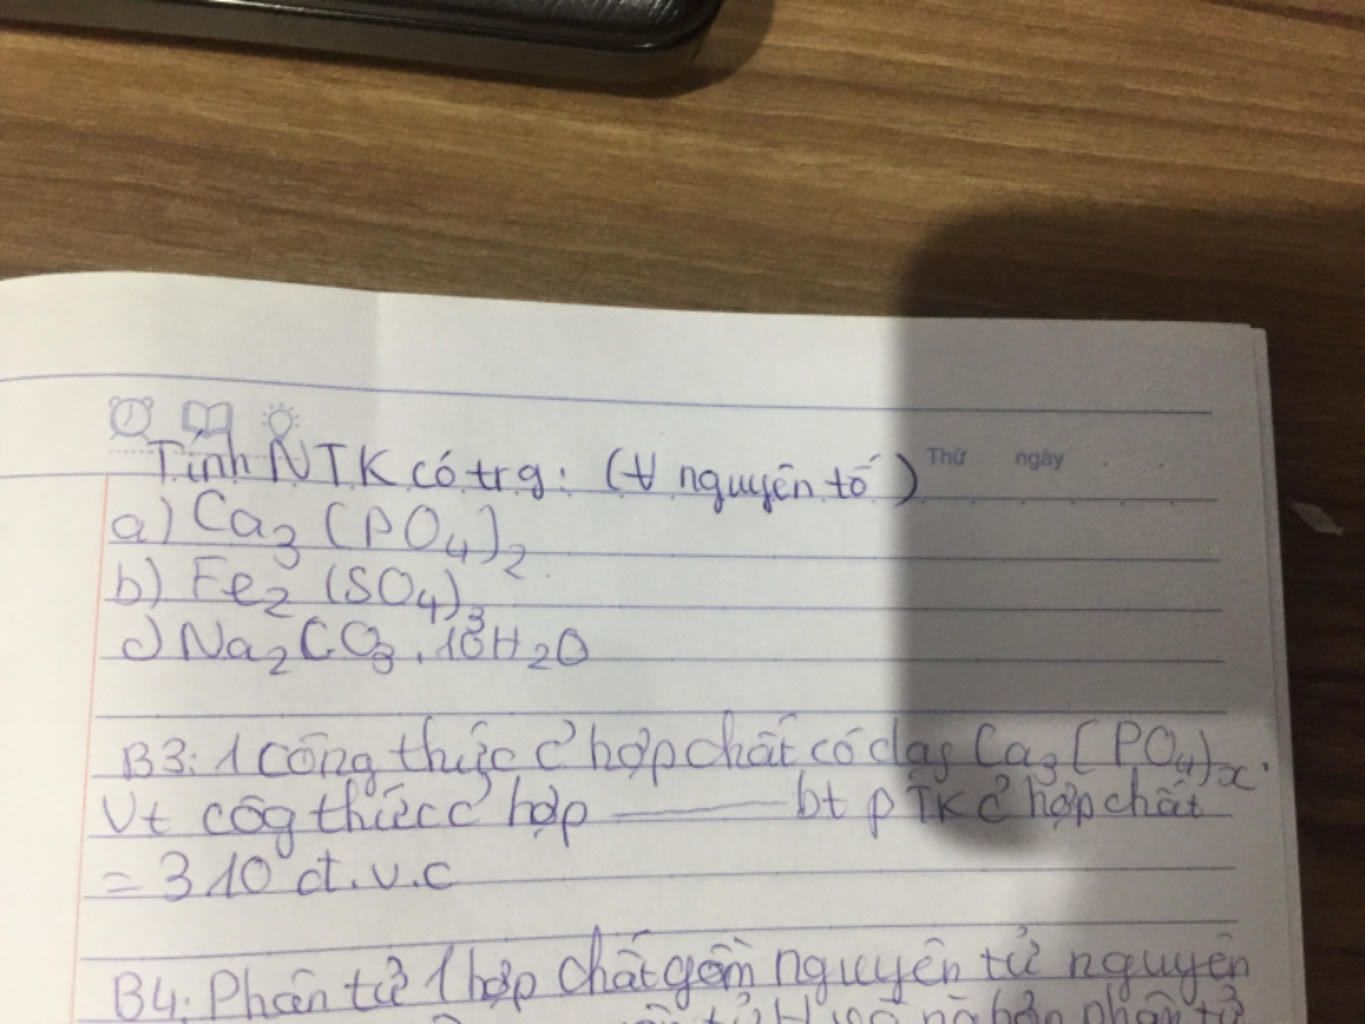 Tính NTK có trg: (∀ nguyên tố)
Thứ ngày
a) Ca3 (PO4)2
b) Fe2 (SO4)3
c) Na2CO3. 10H2O
B3: 1 công thức c̉ hợp chất có dạg Ca3(PO4)x.
Vt côg thức c̉ hợp ——— bt pTK c̉ hợp chất
= 310 đ.v.c
B4: Phân tử 1 hợp chất gồm nguyên tử nguyên